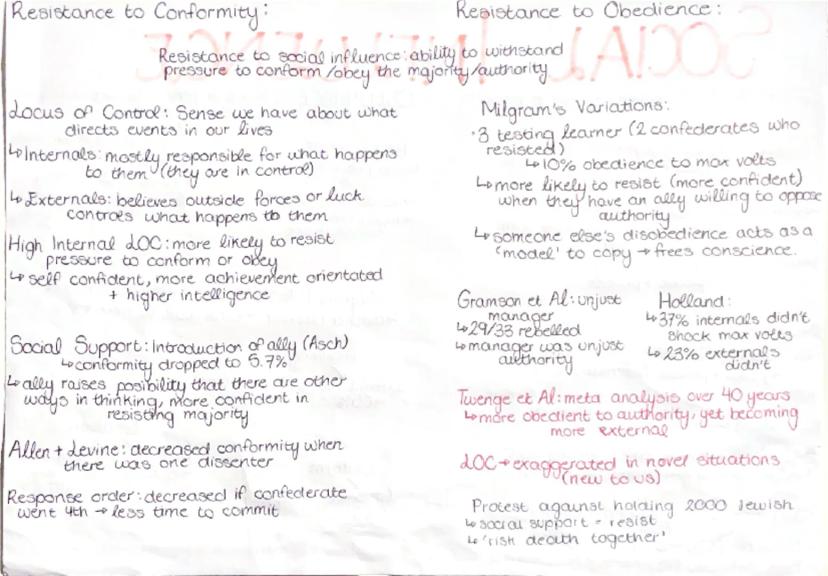 Resistance to Conformity:
Resistance to Obedience:
Resistance to social influence: ability to withstand
pressure to conform/obey the majority/authority
Locus of Control: Sense we have about what
directs events in our lives
↳Internals: mostly responsible for what happens
to them (they are in control)
↳Externals: believes outside forces or luck
controls what happens to them
High Internal LOC: more likely to resist
pressure to conform or obey
↳self confident, more achievement orientated
+ higher intelligence
Social Support: Introduction of ally (Asch)
↳conformity dropped to 5.7%
↳ally raises posibility that there are other
ways in thinking, more confident in
resisting majority
Allen + Levine: decreased conformity when
there was one dissenter
Response order: decreased if confederate
went 4th → less time to commit
Milgram's Variations:
·3 testing learner (2 confederates who
resisted)
↳10% obedience to max volts
↳more likely to resist (more confident)
when they have an ally willing to oppose
authority
↳someone else's disobedience acts as a
'model' to copy → frees conscience.
Gramson et Al: unjust
manager
↳29/33 rebelled
↳manager was unjust
authority
Holland:
↳37% internals didn't
shock max volts
↳23% externals
didn't
Twenge et Al: meta analysis over 40 years
↳more obedient to authority, yet becoming
more external
LOC → exaggerated in novel situations
(new to us)
Protest against holding 2000 Jewish
↳social support = resist
↳'risk death together'
SOCIAL INFLUENCE